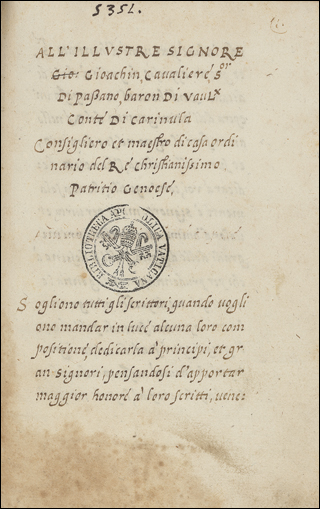 5351.
ALL'ILLVSTRE SIGNORE
Gio: Gioachin, Cavaliere, S.or
Di Paßano, baron Di Vaulx
Conte Di Carinula
Consigliero et maestro di casa ordi
nario del Re christianissimo,
Patritio Genoese,
BIBLIOTHECA APOSTOLICA VATICANA
Sogliono tutti gli scrittori, quando vogli
ono mandar in luce alcuna loro com
positione, dedicarla à principi, et gr
an signori, pensandosi d'apportar
maggior honore à loro scritti, venei